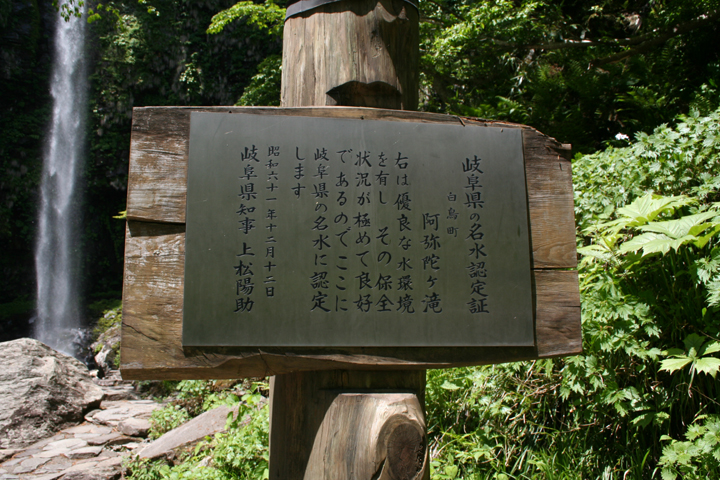 岐阜県の名水認定証
白鳥町
阿弥陀ヶ滝
右は優良な水環境
を有し その保全
状況が極めて良好
であるのでここに
岐阜県の名水に認定
します
昭和六十一年十二月十二日
岐阜県知事 上松陽助